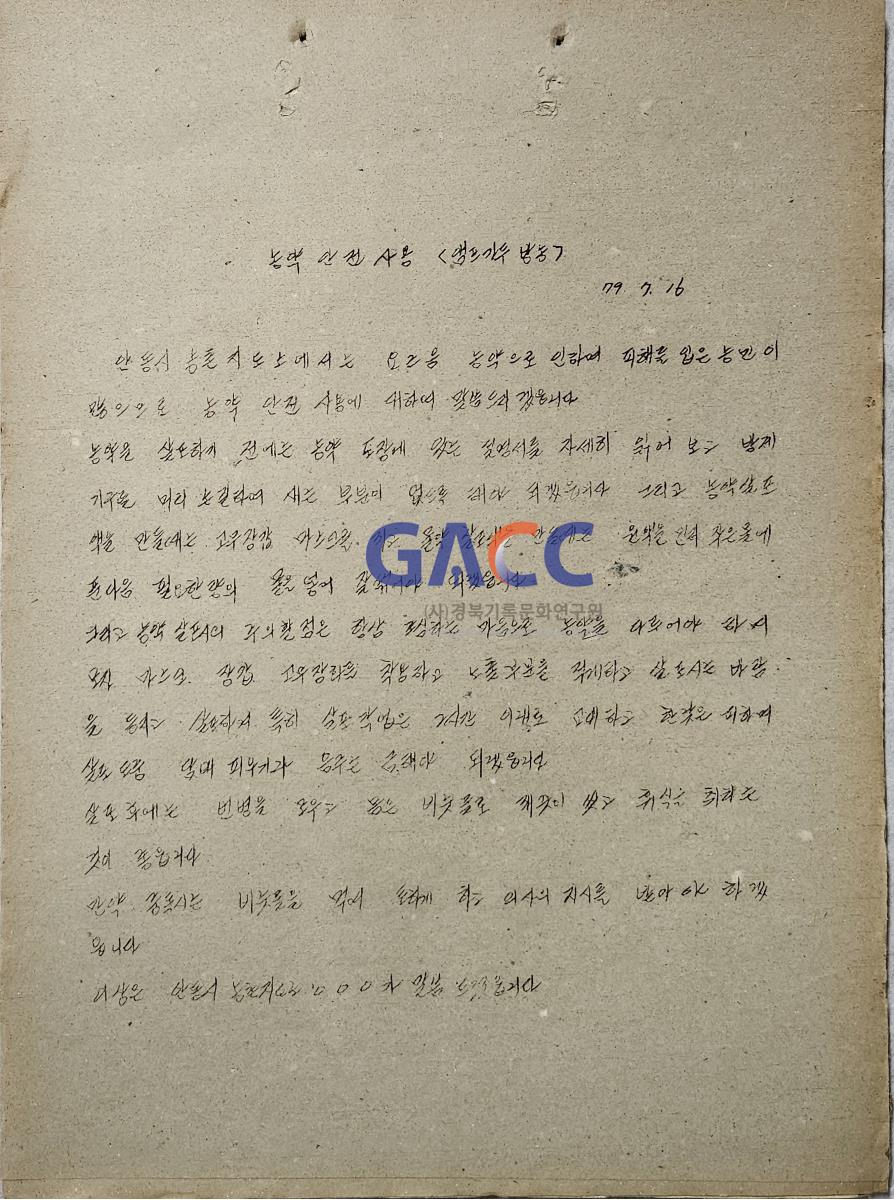 농약 안전 사용 <앰프가두 방송>
79 7. 16
안동시 농촌지도소에서는 요즈음 농약으로 인하여 피해를 입은 농민이
많으므로 농약 안전 사용에 대하여 말씀드리겠읍니다
농약을 살포하기 전에는 농약 포장에 있는 설명서를 자세히 읽어 보고 방제
기구를 미리 손질하여 새는 부분이 없도록 해야 되겠읍니다 그리고 농약살포
액을 만들때는 고무장갑 마스크를 하고 물약 살포액을 만들때는 원약을 먼저 작은물에
푼다음 필요한 양의 물을 넣어 잘 섞어야 되겠읍니다
GACC
(사)경북기록문화연구원
그리고 농약 살포시의 주의할점은 항상 조심하는 마음으로 농약을 다루어야 하며
모자 마스크 장갑 고무장화를 착용하고 노출부분을 적게하고 살포시는 바람
을 등지고 살포하며 특히 살포작업은 2시간 이내로 교대하고 한낮은 피하며
살포도중 담배 피우거나 음주는 금해야 되겠읍니다
살포 후에는 빈병을 모우고 몸은 비눗물로 깨끗이 씻고 휴식을 취하는
것이 좋읍니다
만약 중독시는 비눗물을 먹여 토하게 하고 의사의 지시를 받아야 하겠
읍니다
이상은 안동시 농촌지도소 000가 말씀 드렸읍니다